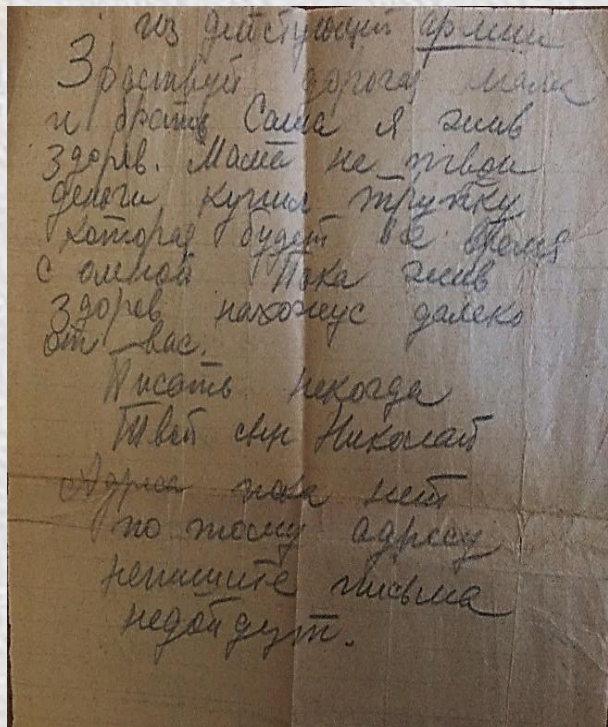 из действующей армии
Здраствуй дорогая мама
и братиз Саша я жив
здоров. Мама на твои
деньги купил трупку
которая будет все время
с омной Пока жив
здоров нахожус далеко
от вас.
Писать некогда
Твой сын Николай
Адреса пока нет
по тому адресу
непишите письма
недойдут.